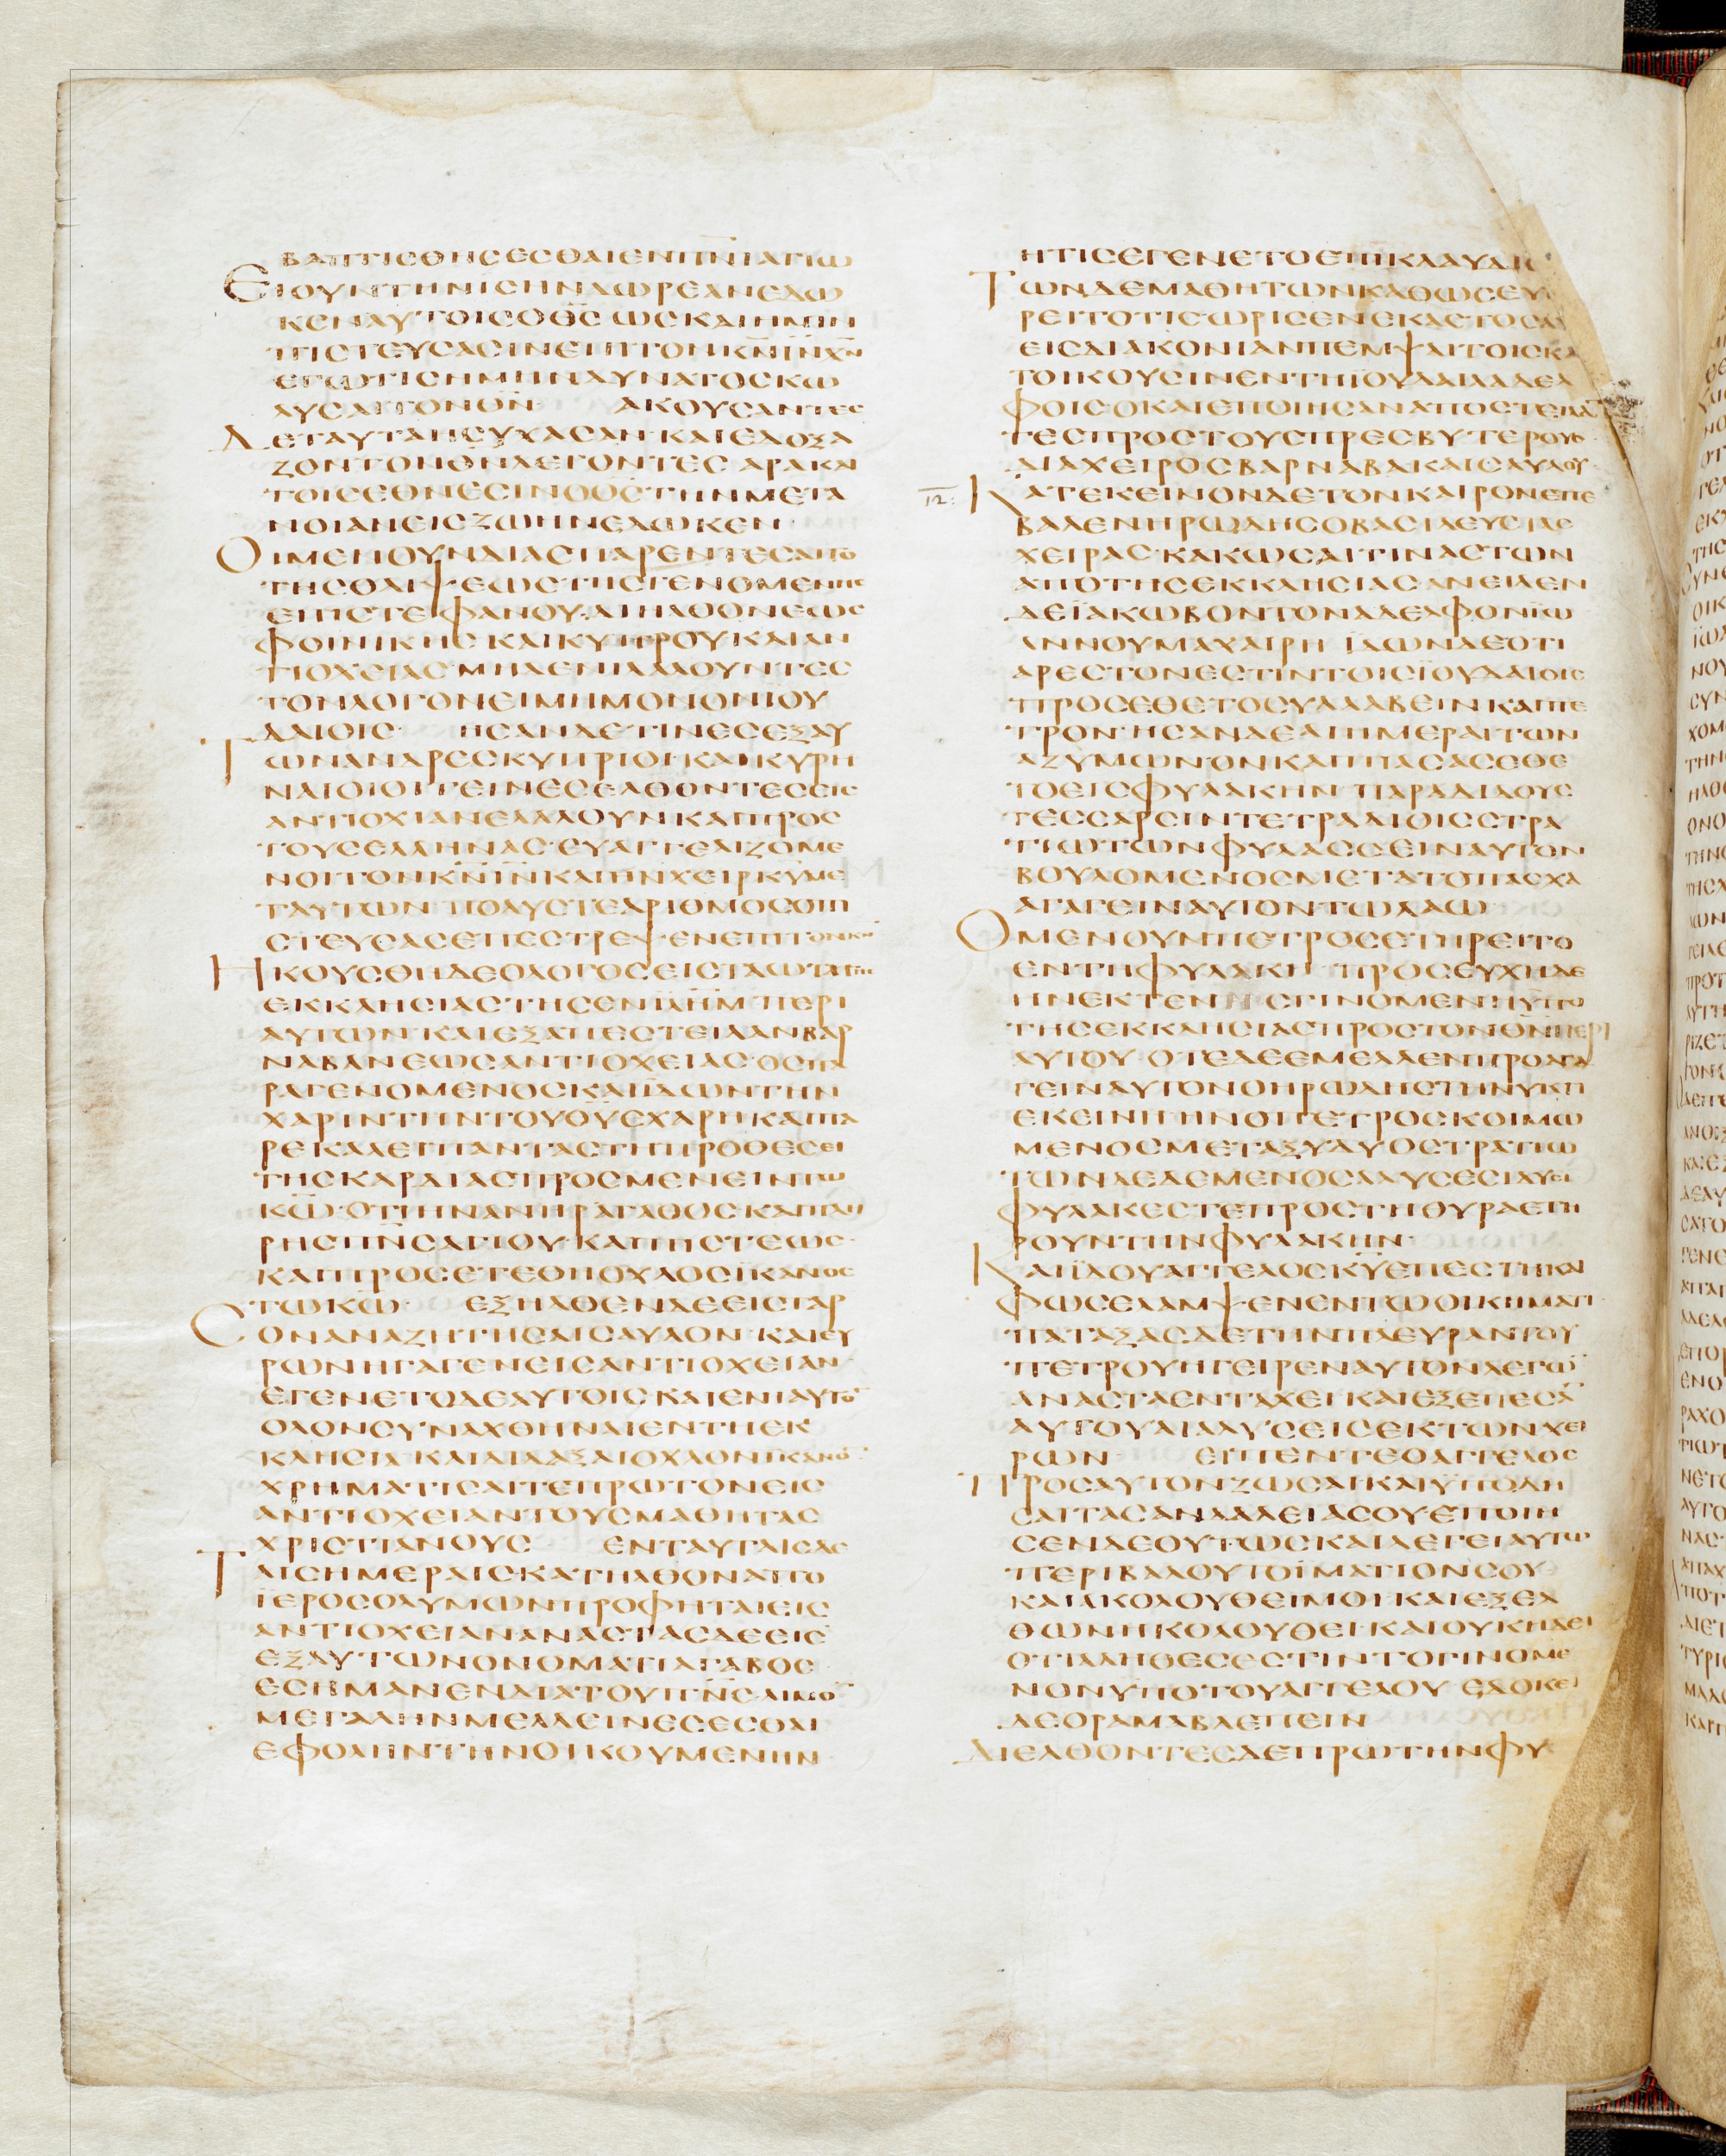 ΒΑΠΤΙΣΘΗΣΕΣΘΑΙΕΝΠΝΙΑΓΙΩ
ΕΙΟΥΝΤΗΝΙΣΗΝΔΩΡΕΑΝΕΔΩ
ΚΕΝΑΥΤΟΙΣΟΘΣΩΣΚΑΙΗΜΙΝ
ΠΙΣΤΕΥΣΑΣΙΝΕΠΙΤΟΝΚΝΙΝΧΝ
ΕΓΩΤΙΣΗΜΗΝΔΥΝΑΤΟΣΚΩ
ΛΥΣΑΙΤΟΝΘΝ ΑΚΟΥΣΑΝΤΕΣ
ΔΕΤΑΥΤΑΗΣΥΧΑΣΑΝ·ΚΑΙΕΔΟΞΑ
ΖΟΝΤΟΝΘΝΛΕΓΟΝΤΕΣ·ΑΡΑΚΑΙ
ΤΟΙΣΕΘΝΕΣΙΝΟΘΣΤΗΝΜΕΤΑ
ΝΟΙΑΝΕΙΣΖΩΗΝΕΔΩΚΕΝ
ΟΙΜΕΝΟΥΝΔΙΑΣΠΑΡΕΝΤΕΣΑΠΟ
ΤΗΣΘΛΙΨΕΩΣΤΗΣΓΕΝΟΜΕΝΗΣ
ΕΠΙΣΤΕΦΑΝΟΥ·ΔΙΗΛΘΟΝΕΩΣ
ΦΟΙΝΙΚΗΣΚΑΙΚΥΠΡΟΥΚΑΙΑΝ
ΤΙΟΧΕΙΑΣ·ΜΗΔΕΝΙΛΑΛΟΥΝΤΕΣ
ΤΟΝΛΟΓΟΝΕΙΜΗΜΟΝΟΝΙΟΥ
ΔΑΙΟΙΣ ΗΣΑΝΔΕΤΙΝΕΣΕΞΑΥ
ΤΩΝΑΝΔΡΕΣΚΥΠΡΙΟΙ·ΚΑΙΚΥΡΗ
ΝΑΙΟΙΟΙΤΕΙΝΕΣΕΛΘΟΝΤΕΣΕΙΣ
ΑΝΤΙΟΧΙΑΝΕΛΑΛΟΥΝΚΑΙΠΡΟΣ
ΤΟΥΣΕΛΛΗΝΑΣ·ΕΥΑΓΓΕΛΙΖΟΜΕ
ΝΟΙΤΟΝΚΝΙΝΚΑΙΗΝΧΕΙΡΚΥΜΕ
ΤΑΥΤΩΝ ΠΟΛΥΣΤΕΑΡΙΘΜΟΣΟΠΙ
ΣΤΕΥΣΑΣΕΠΕΣΤΡΕΨΕΝΕΠΙΤΟΝΚΝ
ΗΚΟΥΣΘΗΔΕΟΛΟΓΟΣΕΙΣΤΑΩΤΑΤΗΣ
ΕΚΚΛΗΣΙΑΣΤΗΣΕΝΙΛΗΜΠΕΡΙ
ΑΥΤΩΝ·ΚΑΙΕΞΑΠΕΣΤΕΙΛΑΝΒΑΡ
ΝΑΒΑΝΕΩΣΑΝΤΙΟΧΕΙΑΣ·ΟΣΠΑ
ΡΑΓΕΝΟΜΕΝΟΣΚΑΙΙΔΩΝΤΗΝ
ΧΑΡΙΝΤΗΝΤΟΥΘΥΕΧΑΡΗ·ΚΑΙΠΑ
ΡΕΚΑΛΕΙΠΑΝΤΑΣΤΗΠΡΟΘΕΣΕΙ
ΤΗΣΚΑΡΔΙΑΣΠΡΟΣΜΕΝΕΙΝΤΩ
ΚΩ·ΟΤΙΗΝΑΝΗΡΑΓΑΘΟΣΚΑΙΠΛΗ
ΡΗΣΠΝΣΑΓΙΟΥ·ΚΑΙΠΙΣΤΕΩΣ·
ΚΑΙΠΡΟΣΕΤΕΘΗΟΧΛΟΣΙΚΑΝΟΣ
ΤΩΚΩ ΕΞΗΛΘΕΝΔΕΕΙΣΤΑΡ
ΣΟΝΑΝΑΖΗΤΗΣΑΙΣΑΥΛΟΝ·ΚΑΙΕΥ
ΡΩΝΗΓΑΓΕΝΕΙΣΑΝΤΙΟΧΕΙΑΝ·
ΕΓΕΝΕΤΟΔΕΑΥΤΟΙΣΚΑΙΕΝΙΑΥΤΟ
ΟΛΟΝΣΥΝΑΧΘΗΝΑΙΕΝΤΗΕΚ
ΚΛΗΣΙΑ·ΚΑΙΔΙΔΑΞΑΙΟΧΛΟΝΙΚΑΝΟ
ΧΡΗΜΑΤΙΣΑΙΤΕΠΡΩΤΟΝΕΙΣ
ΑΝΤΙΟΧΕΙΑΝΤΟΥΣΜΑΘΗΤΑΣ
ΧΡΙΣΤΙΑΝΟΥΣ ΕΝΤΑΥΤΑΙΣΔΕ
ΤΑΙΣΗΜΕΡΑΙΣ·ΚΑΤΗΛΘΟΝΑΠΟ
ΙΕΡΟΣΟΛΥΜΩΝΠΡΟΦΗΤΑΙΕΙΣ
ΑΝΤΙΟΧΕΙΑΝΑΝΑΣΤΑΣΔΕΕΙΣ
ΕΞΑΥΤΩΝΟΝΟΜΑΤΙΑΓΑΒΟΣ
ΕΣΗΜΑΝΕΝΔΙΑΤΟΥΠΝΣΛΙΜΟ
ΜΕΓΑΛΗΝΜΕΛΛΕΙΝΕΣΕΣΘΑΙ
ΕΦΟΛΗΝΤΗΝΟΙΚΟΥΜΕΝΗΝ
ΗΤΙΣΕΓΕΝΕΤΟΕΠΙΚΛΑΥΔΙΟ
ΤΩΝΔΕΜΑΘΗΤΩΝΚΑΘΩΣΕΥ
ΡΕΙΤΟΤΙΣΩΡΙΣΕΝΕΚΑΣΤΟΣΑΥ
ΕΙΣΔΙΑΚΟΝΙΑΝΠΕΜΨΑΙΤΟΙΣΚΑ
ΤΟΙΚΟΥΣΙΝΕΝΤΗΙΟΥΔΑΙΑΑΔΕΛ
ΦΟΙΣ·ΟΚΑΙΕΠΟΙΗΣΑΝΑΠΟΣΤΕΙΛΑ
ΤΕΣΠΡΟΣΤΟΥΣΠΡΕΣΒΥΤΕΡΟΥΣ
ΔΙΑΧΕΙΡΟΣΒΑΡΝΑΒΑΚΑΙΣΑΥΛΟΥ·
12: ΚΑΤΕΚΕΙΝΟΝΔΕΤΟΝΚΑΙΡΟΝΕΠΕ
ΒΑΛΕΝΗΡΩΔΗΣΟΒΑΣΙΛΕΥΣΤΑΣ
ΧΕΙΡΑΣ·ΚΑΚΩΣΑΙΤΙΝΑΣΤΩΝ
ΑΠΟΤΗΣΕΚΚΛΗΣΙΑΣΑΝΕΙΛΕΝ
ΔΕΙΑΚΩΒΟΝΤΟΝΑΔΕΛΦΟΝΙΩ
ΑΝΝΟΥΜΑΧΑΙΡΗ ΙΔΩΝΔΕΟΤΙ
ΑΡΕΣΤΟΝΕΣΤΙΝΤΟΙΣΙΟΥΔΑΙΟΙΣ
ΠΡΟΣΕΘΕΤΟΣΥΛΛΑΒΕΙΝΚΑΙΠΕ
ΤΡΟΝ·ΗΣΑΝΔΕΑΙΗΜΕΡΑΙΤΩΝ
ΑΖΥΜΩΝΟΝΚΑΙΠΙΑΣΑΣΕΘΕ
ΤΟΕΙΣΦΥΛΑΚΗΝ ΠΑΡΑΔΙΔΟΥΣ
ΤΕΣΣΑΡΣΙΝΤΕΤΡΑΔΙΟΙΣΣΤΡΑ
ΤΙΩΤΩΝΦΥΛΑΣΣΕΙΝΑΥΤΟΝ
ΒΟΥΛΟΜΕΝΟΣΜΕΤΑΤΟΠΑΣΧΑ
ΑΓΑΓΕΙΝΑΥΤΟΝΤΩΛΑΩ
ΟΜΕΝΟΥΝΠΕΤΡΟΣΕΤΗΡΕΙΤΟ
ΕΝΤΗΦΥΛΑΚΗ ΠΡΟΣΕΥΧΗΔΕ
ΗΝΕΚΤΕΝΗΣΓΙΝΟΜΕΝΗΥΠΟ
ΤΗΣΕΚΚΛΗΣΙΑΣΠΡΟΣΤΟΝΘΝΠΕΡΙ
ΑΥΤΟΥ·ΟΤΕΔΕΕΜΕΛΛΕΝΠΡΟΑΓΑ
ΓΕΙΝΑΥΤΟΝΟΗΡΩΔΗΣΤΗΝΥΚΤΙ
ΕΚΕΙΝΗΗΝΟΠΕΤΡΟΣΚΟΙΜΩ
ΜΕΝΟΣΜΕΤΑΞΥΔΥΟΣΤΡΑΤΙΩ
ΤΩΝΔΕΔΕΜΕΝΟΣΑΛΥΣΕΣΙΔΥΣΙ
ΦΥΛΑΚΕΣΤΕΠΡΟΣΤΗΘΥΡΑΕΤΗ
ΡΟΥΝΤΗΝΦΥΛΑΚΗΝ·
ΚΑΙΙΔΟΥΑΓΓΕΛΟΣΚΥΕΠΕΣΤΗΚΑΙ
ΦΩΣΕΛΑΜΨΕΝΕΝΤΩΟΙΚΗΜΑΤΙ
ΠΑΤΑΞΑΣΔΕΤΗΝΠΛΕΥΡΑΝΤΟΥ
ΠΕΤΡΟΥΗΓΕΙΡΕΝΑΥΤΟΝΛΕΓΩ
ΑΝΑΣΤΑΕΝΤΑΧΕΙ·ΚΑΙΕΞΕΠΕΣΑ
ΑΥΤΟΥΑΙΑΛΥΣΕΙΣΕΚΤΩΝΧΕΙ
ΡΩΝ ΕΙΠΕΝΤΕΟΑΓΓΕΛΟΣ
ΠΡΟΣΑΥΤΟΝΖΩΣΑΙΚΑΙΥΠΟΔΗ
ΣΑΙΤΑΣΑΝΔΑΛΕΙΑΣΟΥ·ΕΠΟΙΗ
ΣΕΝΔΕΟΥΤΩΣΚΑΙΛΕΓΕΙΑΥΤΩ
ΠΕΡΙΒΑΛΟΥΤΟΙΜΑΤΙΟΝΣΟΥ·
ΚΑΙΑΚΟΛΟΥΘΕΙΜΟΙ·ΚΑΙΕΞΕΛ
ΘΩΝΗΚΟΛΟΥΘΕΙ·ΚΑΙΟΥΚΗΔΕΙ
ΟΤΙΑΛΗΘΕΣΕΣΤΙΝΤΟΓΙΝΟΜΕ
ΝΟΝΥΠΟΤΟΥΑΓΓΕΛΟΥ·ΕΔΟΚΕΙ
ΔΕΟΡΑΜΑΒΛΕΠΕΙΝ
ΔΙΕΛΘΟΝΤΕΣΔΕΠΡΩΤΗΝΦΥ